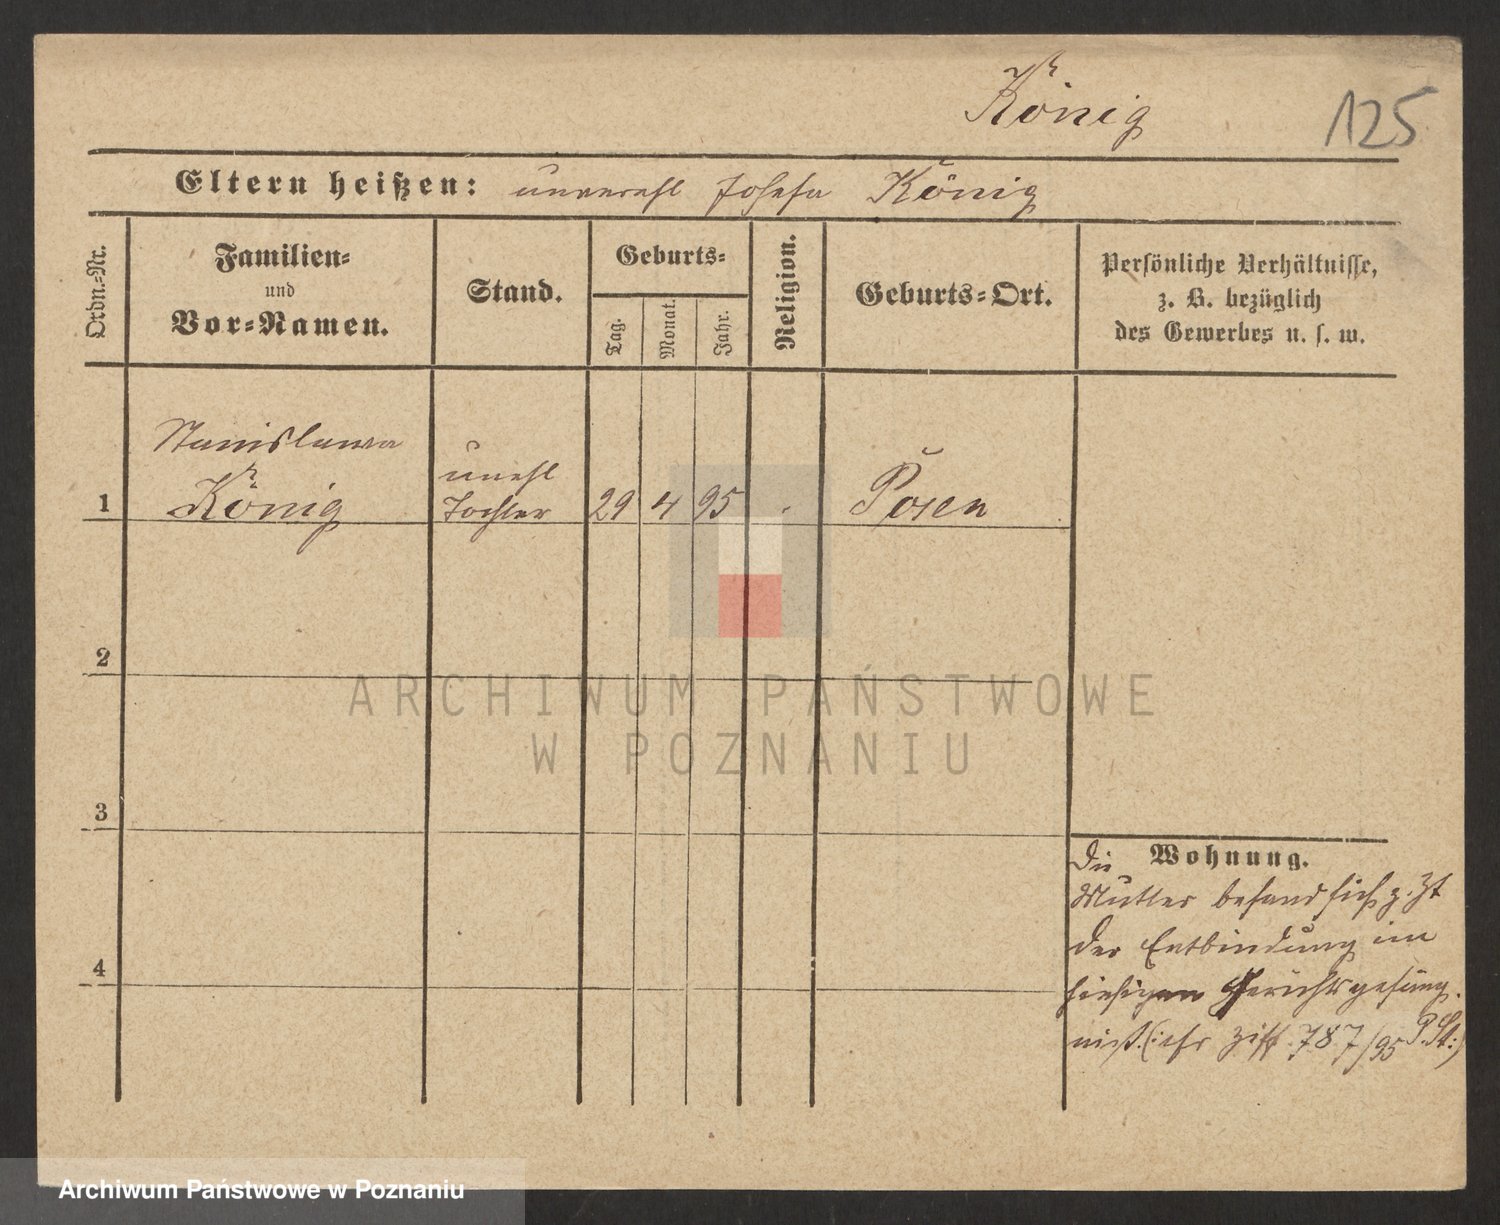 König
125
Eltern heißen: unverehl Josefa König
Ordn.-Nr.
Familien-
und
Vor-Namen.
Stand.
Geburts-
Tag.
Monat.
Jahr.
Religion.
Geburts-Ort.
Persönliche Verhältnisse,
z. B. bezüglich
des Gewerbes u. s. w.
Stanislawa
König
unehl
Tochter
1
29
4
95
Posen
2
3
4
Wohnung.
Die
Mutter befand sich z. Zt
der Entbindung im
hiesigen Gerichtsgefäng-
niß. (: cfr Ziff 787/95 P. St:)
ARCHIWUM PAŃSTWOWE
W POZNANIU
Archiwum Państwowe w Poznaniu